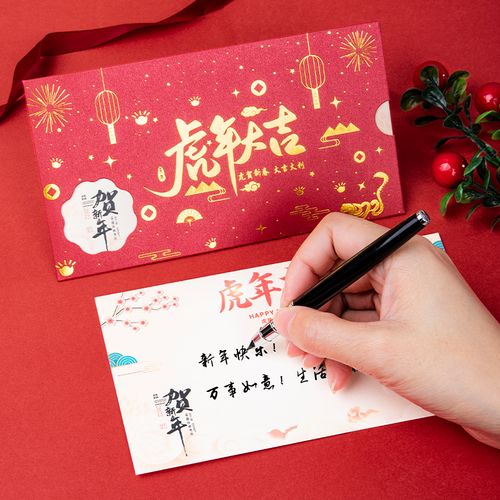 虎年大吉
虎贺新春 大吉大利
贺新年
虎年
HAPPY
新年快乐!
万事如意! 生活
贺新年